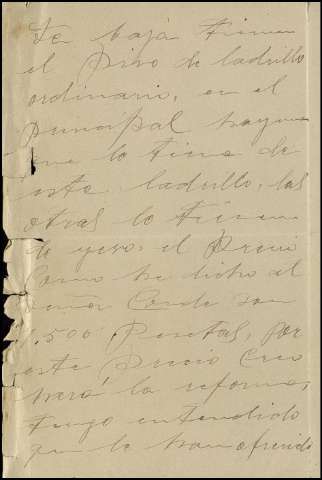 ta baja tienen
el piso de ladrillo
ordinario, en el
principal hay una
que lo tiene de
este ladrillo, las
otras lo tienen
de yeso. el Precio
Como he dicho al
Señor Conde son
.500 Pesetas, por
este Precio Creo
hará la reforma,
tengo entendido
que le han ofrecido